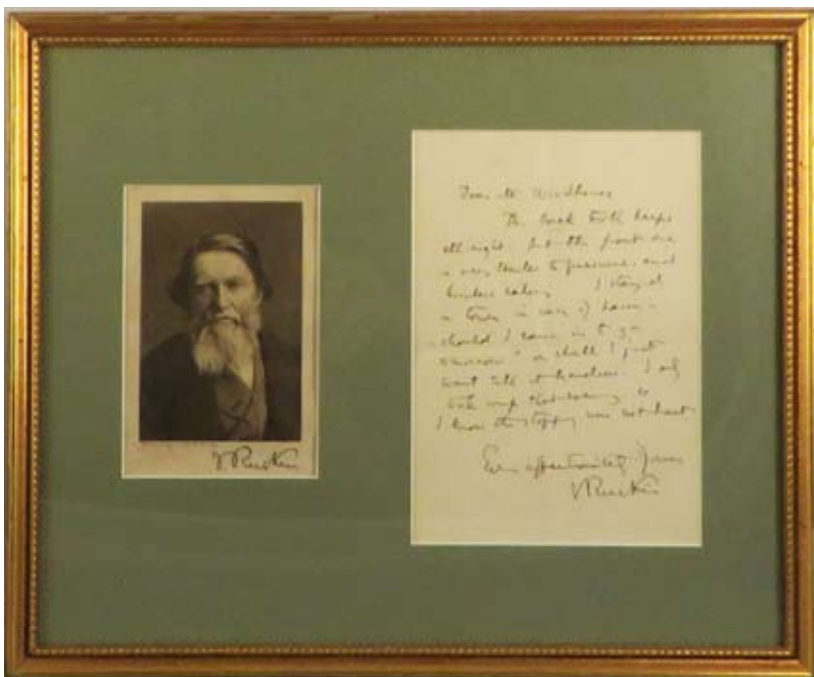 J Ruskin
Dear Mr Woodhouse
The back tooth keeps
all right but the front one
is very tender to pressure, and
hinders eating I stay at
in town in case of
should I come in to you
or shall I just
wait till it I only
took soup that evening, so
I know the stopping was not hurt
Ever affectionately Yours
J Ruskin